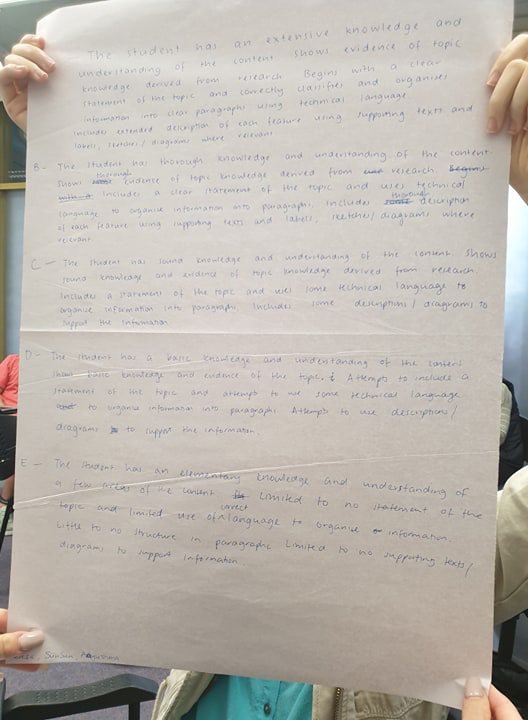 The student has an extensive knowledge and
understanding of the content shows evidence of topic
knowledge derived from research Begins with a clear
statement of the topic and correctly classifies and organises
information into clear paragraphs using technical language.
includes extended description of each feature using supporting texts and
labels, sketches / diagrams where relevant
B - The student has thorough knowledge and understanding of the content.
Shows thorough evidence of topic knowledge derived from research
Includes a clear statement of the topic and uses technical
language to organise information into paragraphs. Includes thorough description
of each feature using supporting texts and labels, sketches/diagrams where
relevant
C - The student has sound knowledge and understanding of the content Shows
sound knowledge and evidence of topic knowledge derived from research
Includes a statement of the topic and uses some technical language to
organise information into paragraphs. Includes some descriptions / diagrams to
support the information
D - The student has a basic knowledge and understanding of the content
show basic knowledge and evidence of the topic. Attempts to include a
statement of the topic and attempts to use some technical language
to organise information into paragraphs Attempts to use description/
diagrams to support the information
E - The student has an elementary knowledge and understanding of
a few areas of the content Limited to no statement of the
topic and limited use of correct language to organise information.
Little to no structure in paragraphs Limited to no supporting texts/
diagrams to support information